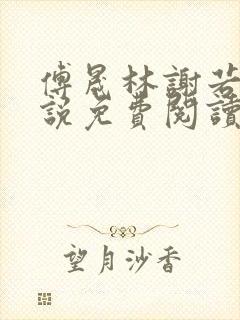 傅晟林謝若
説免費閱讀
望月沙香